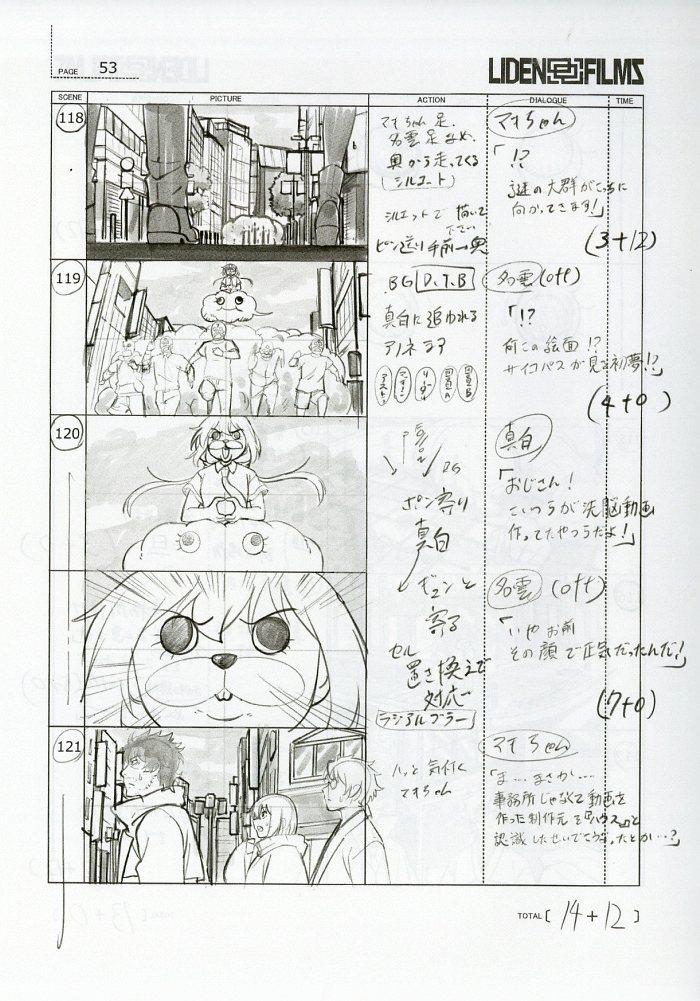 PAGE 53
LIDENFILMS
SCENE PICTURE ACTION DIALOGUE TIME
118
マオちゃん足、
名雲足なめ、
奥から走ってくる
(シルエット)
シルエットで描いて
下さい
ピン送り手前→奥
マオちゃん
「!?
謎の大群がこっちに
向かってきます!」
(3+12)
119
BG D.T.B
真白に追われる
アノネミア
名雲 (off)
「!?
何この絵面!?
サイコパスが見る初夢!?」
(4+0)
120
BG
ポン寄り
真白
ギュンと
寄る
セル
置き換えで
対応
ラジアルブラー
真白
「おじさん!
こいつらが洗脳動画
作ってたやつらだよ!」
名雲 (off)
「いやお前
その顔で正気だったんだ!」
(7+0)
121
ハッと気付く
マオちゃん
マオちゃん
「ま…まさか……
事務所じゃなくて動画を
作った制作元を『ハウス』と
認識したせいでこうなったとか…?」
TOTAL [ 14+12 ]